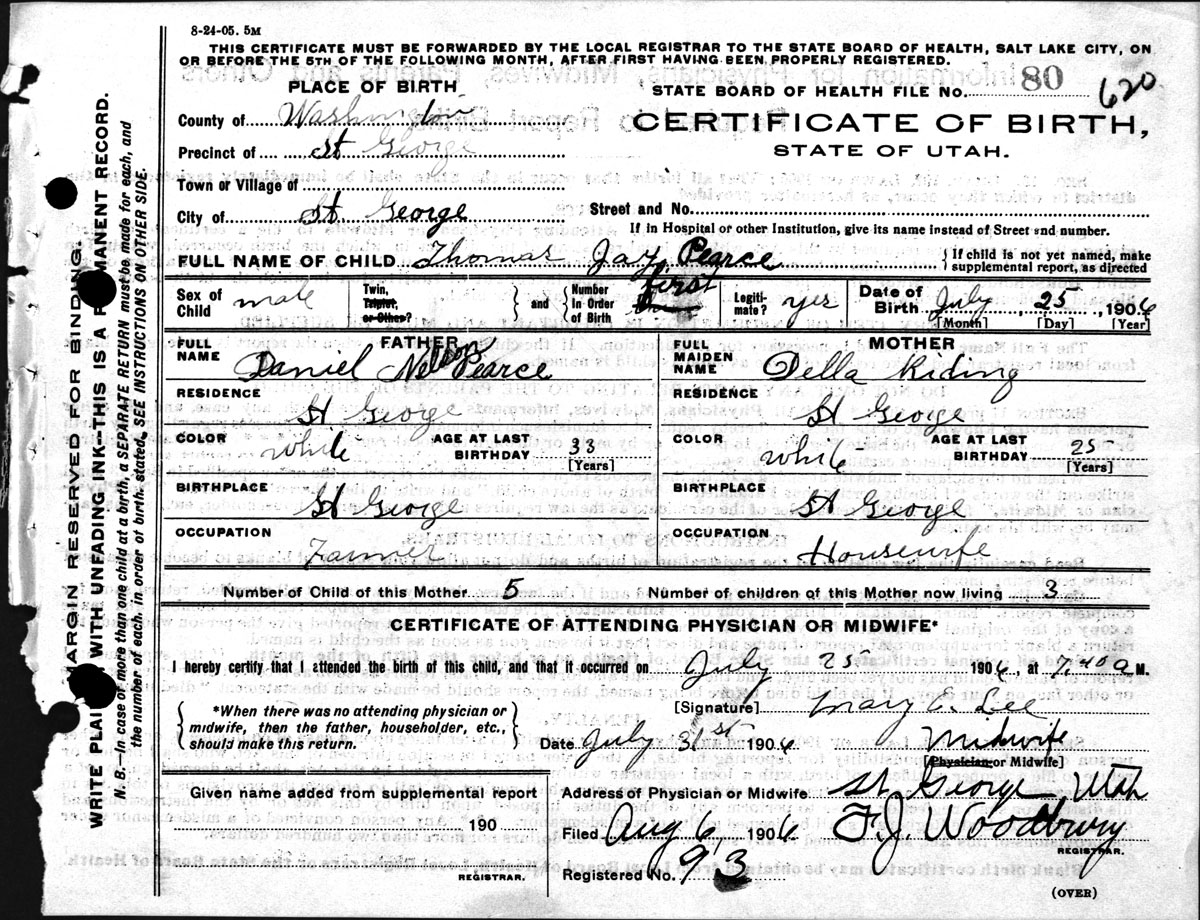 8-24-05. 5M
THIS CERTIFICATE MUST BE FORWARDED BY THE LOCAL REGISTRAR TO THE STATE BOARD OF HEALTH, SALT LAKE CITY, ON
OR BEFORE THE 5TH OF THE FOLLOWING MONTH, AFTER FIRST HAVING BEEN PROPERLY REGISTERED.
PLACE OF BIRTH
STATE BOARD OF HEALTH FILE NO. 80 620
County of Washington
CERTIFICATE OF BIRTH,
Precinct of St George
STATE OF UTAH.
Town or Village of
City of St George
Street and No.
If in Hospital or other Institution, give its name instead of Street and number.
FULL NAME OF CHILD Thomas Jay Pearce
{ If child is not yet named, make
supplemental report, as directed
Sex of Child male
Twin, Triplet, or Other? } and { Number In Order of Birth first
Legitimate? yes
Date of Birth July 25, 1906
[Month] [Day] [Year]
FATHER
FULL NAME Daniel Nelson Pearce
RESIDENCE St George
COLOR white
AGE AT LAST BIRTHDAY 33
[Years]
BIRTHPLACE St George
OCCUPATION Farmer
MOTHER
FULL MAIDEN NAME Della Riding
RESIDENCE St George
COLOR white
AGE AT LAST BIRTHDAY 25
[Years]
BIRTHPLACE St George
OCCUPATION Housewife
Number of Child of this Mother 5 Number of children of this Mother now living 3
CERTIFICATE OF ATTENDING PHYSICIAN OR MIDWIFE*
I hereby certify that I attended the birth of this child, and that it occurred on July 25 1906, at 7:40 a M.
{ *When there was no attending physician or
midwife, then the father, householder, etc.,
should make this return. }
[Signature] Mary E. Lee
Date July 31st 1906 Midwife
[Physician or Midwife]
Given name added from supplemental report
190
REGISTRAR.
Address of Physician or Midwife St George Utah
Filed Aug 6 1906 F.J. Woodbury
REGISTRAR.
Registered No. 93
(OVER)
MARGIN RESERVED FOR BINDING.
WRITE PLAINLY WITH UNFADING INK—THIS IS A PERMANENT RECORD.
N. B.—In case of more than one child at a birth, a SEPARATE RETURN must be made for each, and
the number of each, in order of birth, stated. SEE INSTRUCTIONS ON OTHER SIDE.